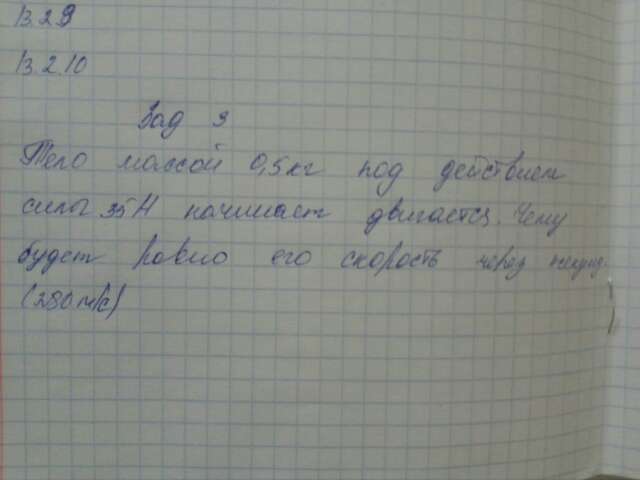 13.2.9
13.2.10
Зад 3
Тело массой 0,5кг под действием
силы 35Н начинает двигается. Чему
будет равно его скорость через
(280м/с)